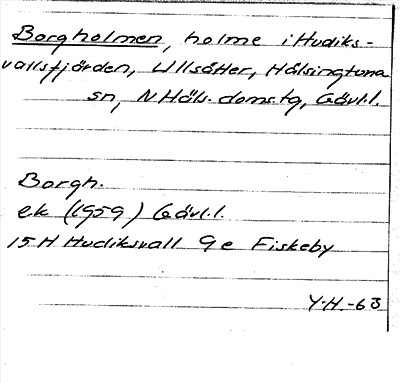 Borgholmen, holme i Hudiks-
vallsfjärden, Ullsäter, Hälsingtuna
sn, N Häls. doms.tg, Gävl.l.
Borgh.
ek (1959) Gävl.l.
15H Hudiksvall 9e Fiskeby
Y.H.-63